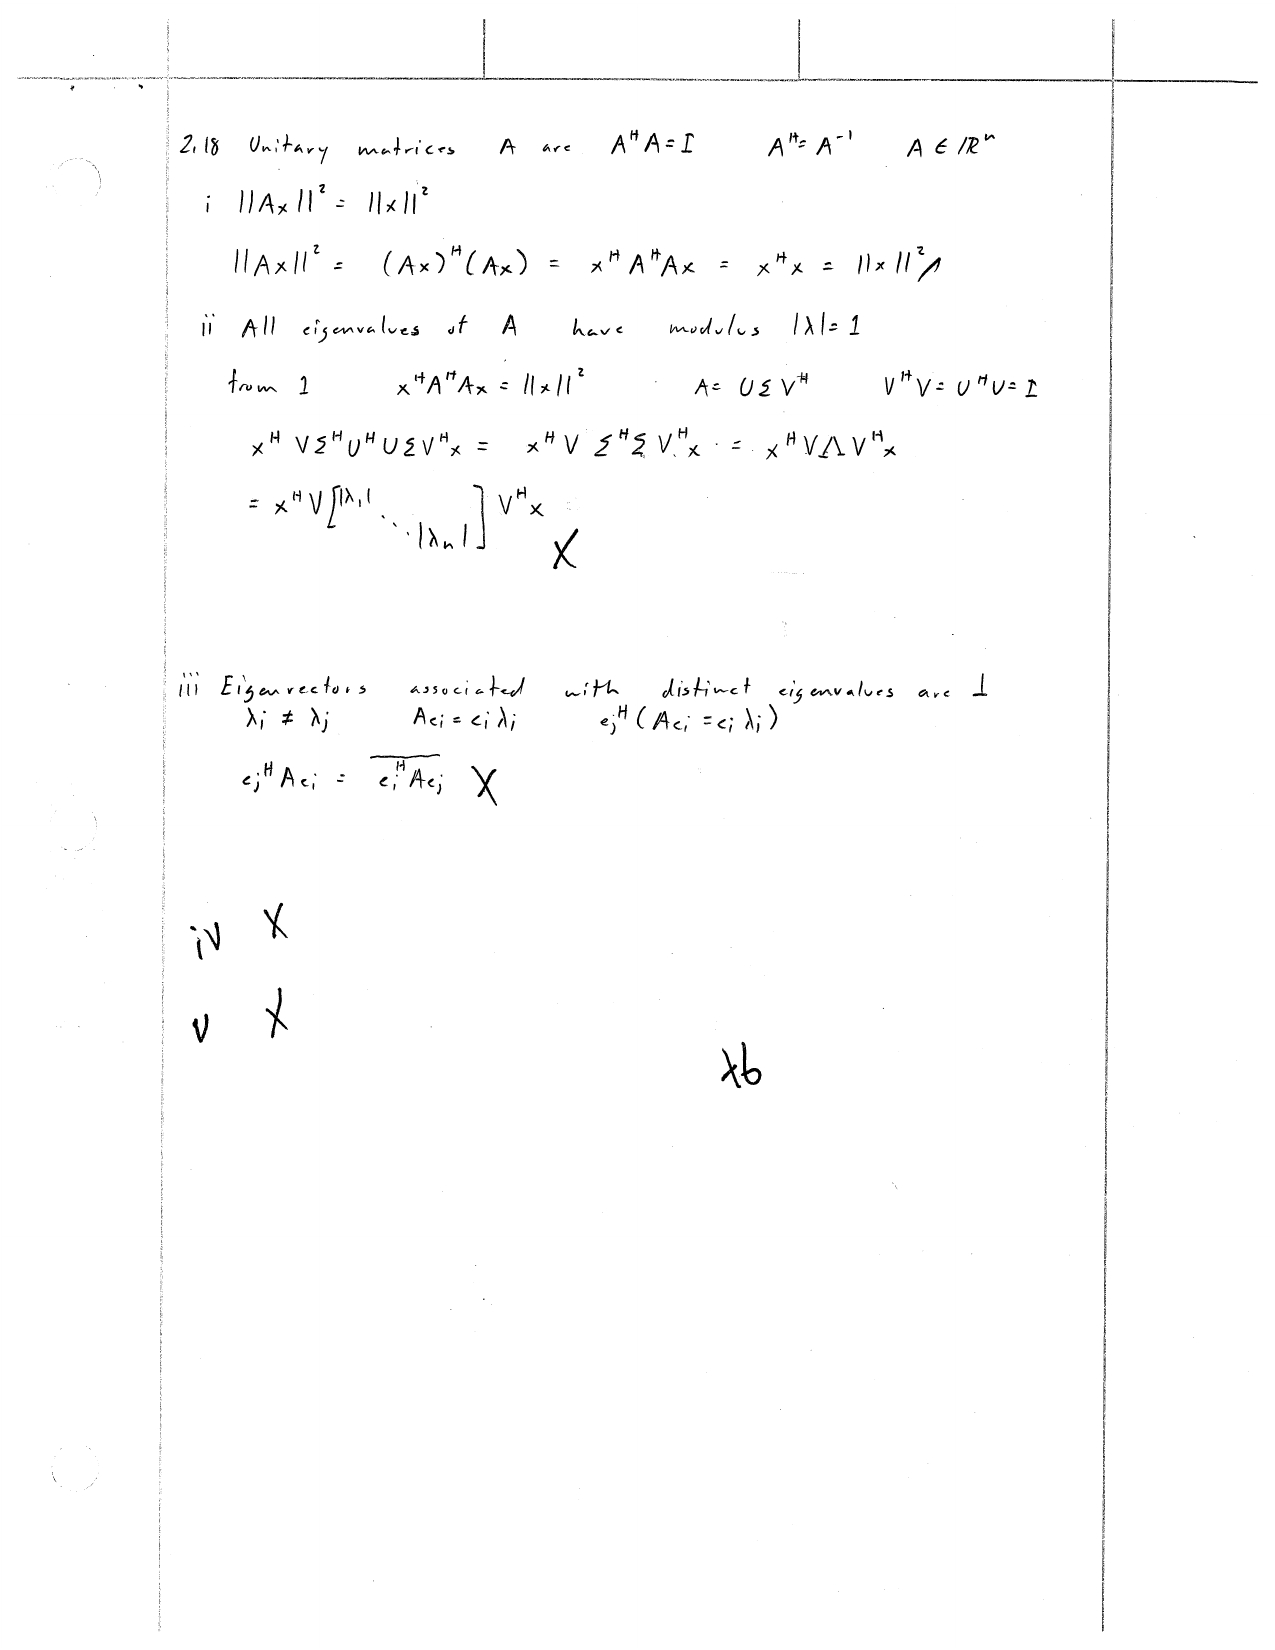 2.18 Unitary matrices A are A^H A = I A^H = A^-1 A ∈ ℝ^n
i ||Ax||² = ||x||²
||Ax||² = (Ax)^H (Ax) = x^H A^H A x = x^H x = ||x||²
ii All eigenvalues of A have modulus |λ| = 1
from 1 x^H A^H A x = ||x||² A = U Σ V^H V^H V = U^H U = I
x^H V Σ^H U^H U Σ V^H x = x^H V Σ^H Σ V^H x = x^H V Λ V^H x
= x^H V [|λ₁| ⋱ |λₙ|] V^H x X
iii Eigenvectors associated with distinct eigenvalues are ⊥
λi ≠ λj Aei = ei λi ej^H (Aei = ei λi)
ej^H A ei = \overline{ei^H A ej} X
iv X
v X
+6